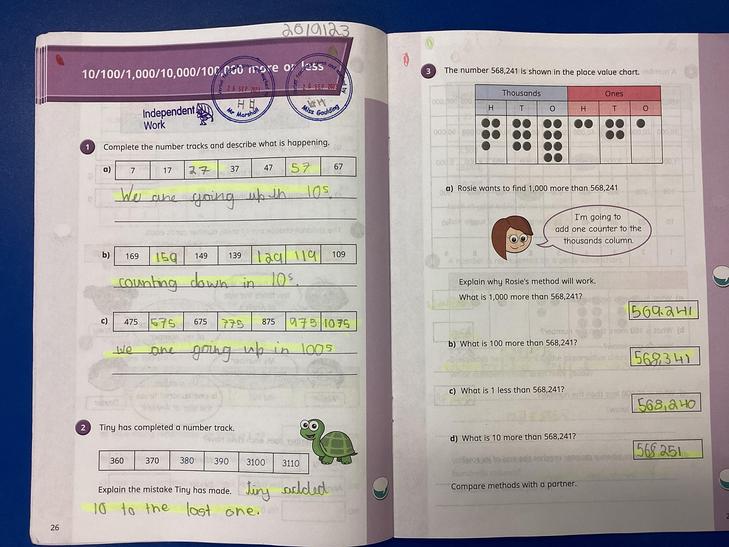 2019123
10/100/1,000/10,000/100,000 more or less
Mr Marshall
Miss Goulding
Independent
Work
1 Complete the number tracks and describe what is happening.
a) 7 17 27 37 47 57 67
We are going up in 10s.
b) 169 159 149 139 129 119 109
counting down in 10s.
c) 475 575 675 775 875 975 1075
we are going up in 100s
2 Tiny has completed a number track.
360 370 380 390 3100 3110
Explain the mistake Tiny has made. tiny added
10 to the last one.
26
3 The number 568,241 is shown in the place value chart.
Thousands Ones
H T O H T O
a) Rosie wants to find 1,000 more than 568,241
I'm going to
add one counter to the
thousands column.
Explain why Rosie's method will work.
What is 1,000 more than 568,241?
569,241
b) What is 100 more than 568,241?
568,341
c) What is 1 less than 568,241?
568,240
d) What is 10 more than 568,241?
568,251
Compare methods with a partner.